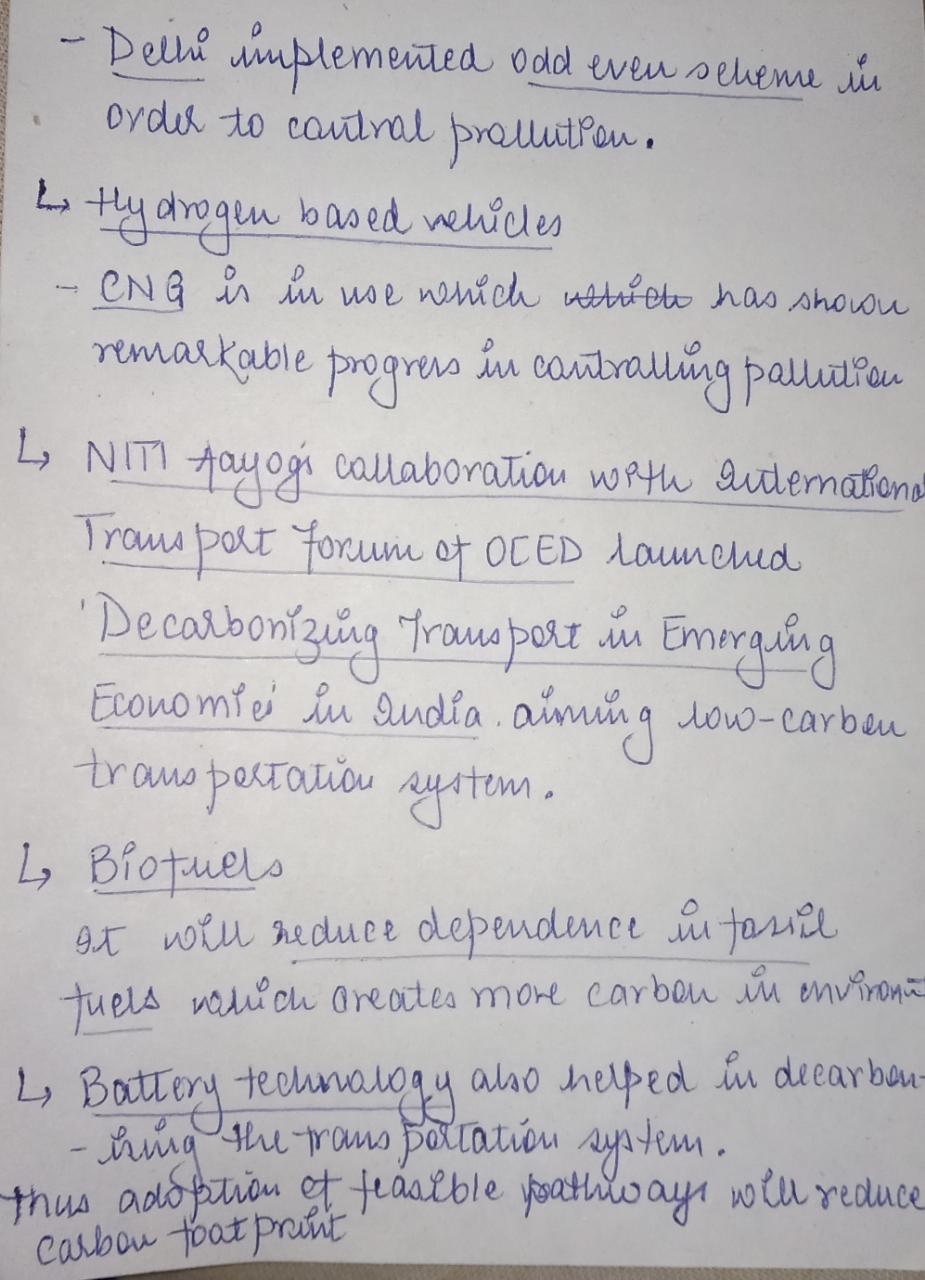 - Delhi implemented odd even scheme in
order to control prollution.
↳ Hydrogen based vehicles
- CNG is in use which which has shown
remarkable progress in controlling pollution
↳ NITI Aayog's collaboration with International
Transport Forum of OCED launched
'Decarbonizing Transport in Emerging
Economie' in India. aiming low-carbon
transportation system.
↳ Biofuels
It will reduce dependence in fossil
fuels which creates more carbon in environ
↳ Battery technology also helped in decarbon-
- ising the transportation system.
Thus adoption of feasible pathways will reduce
carbon footprint